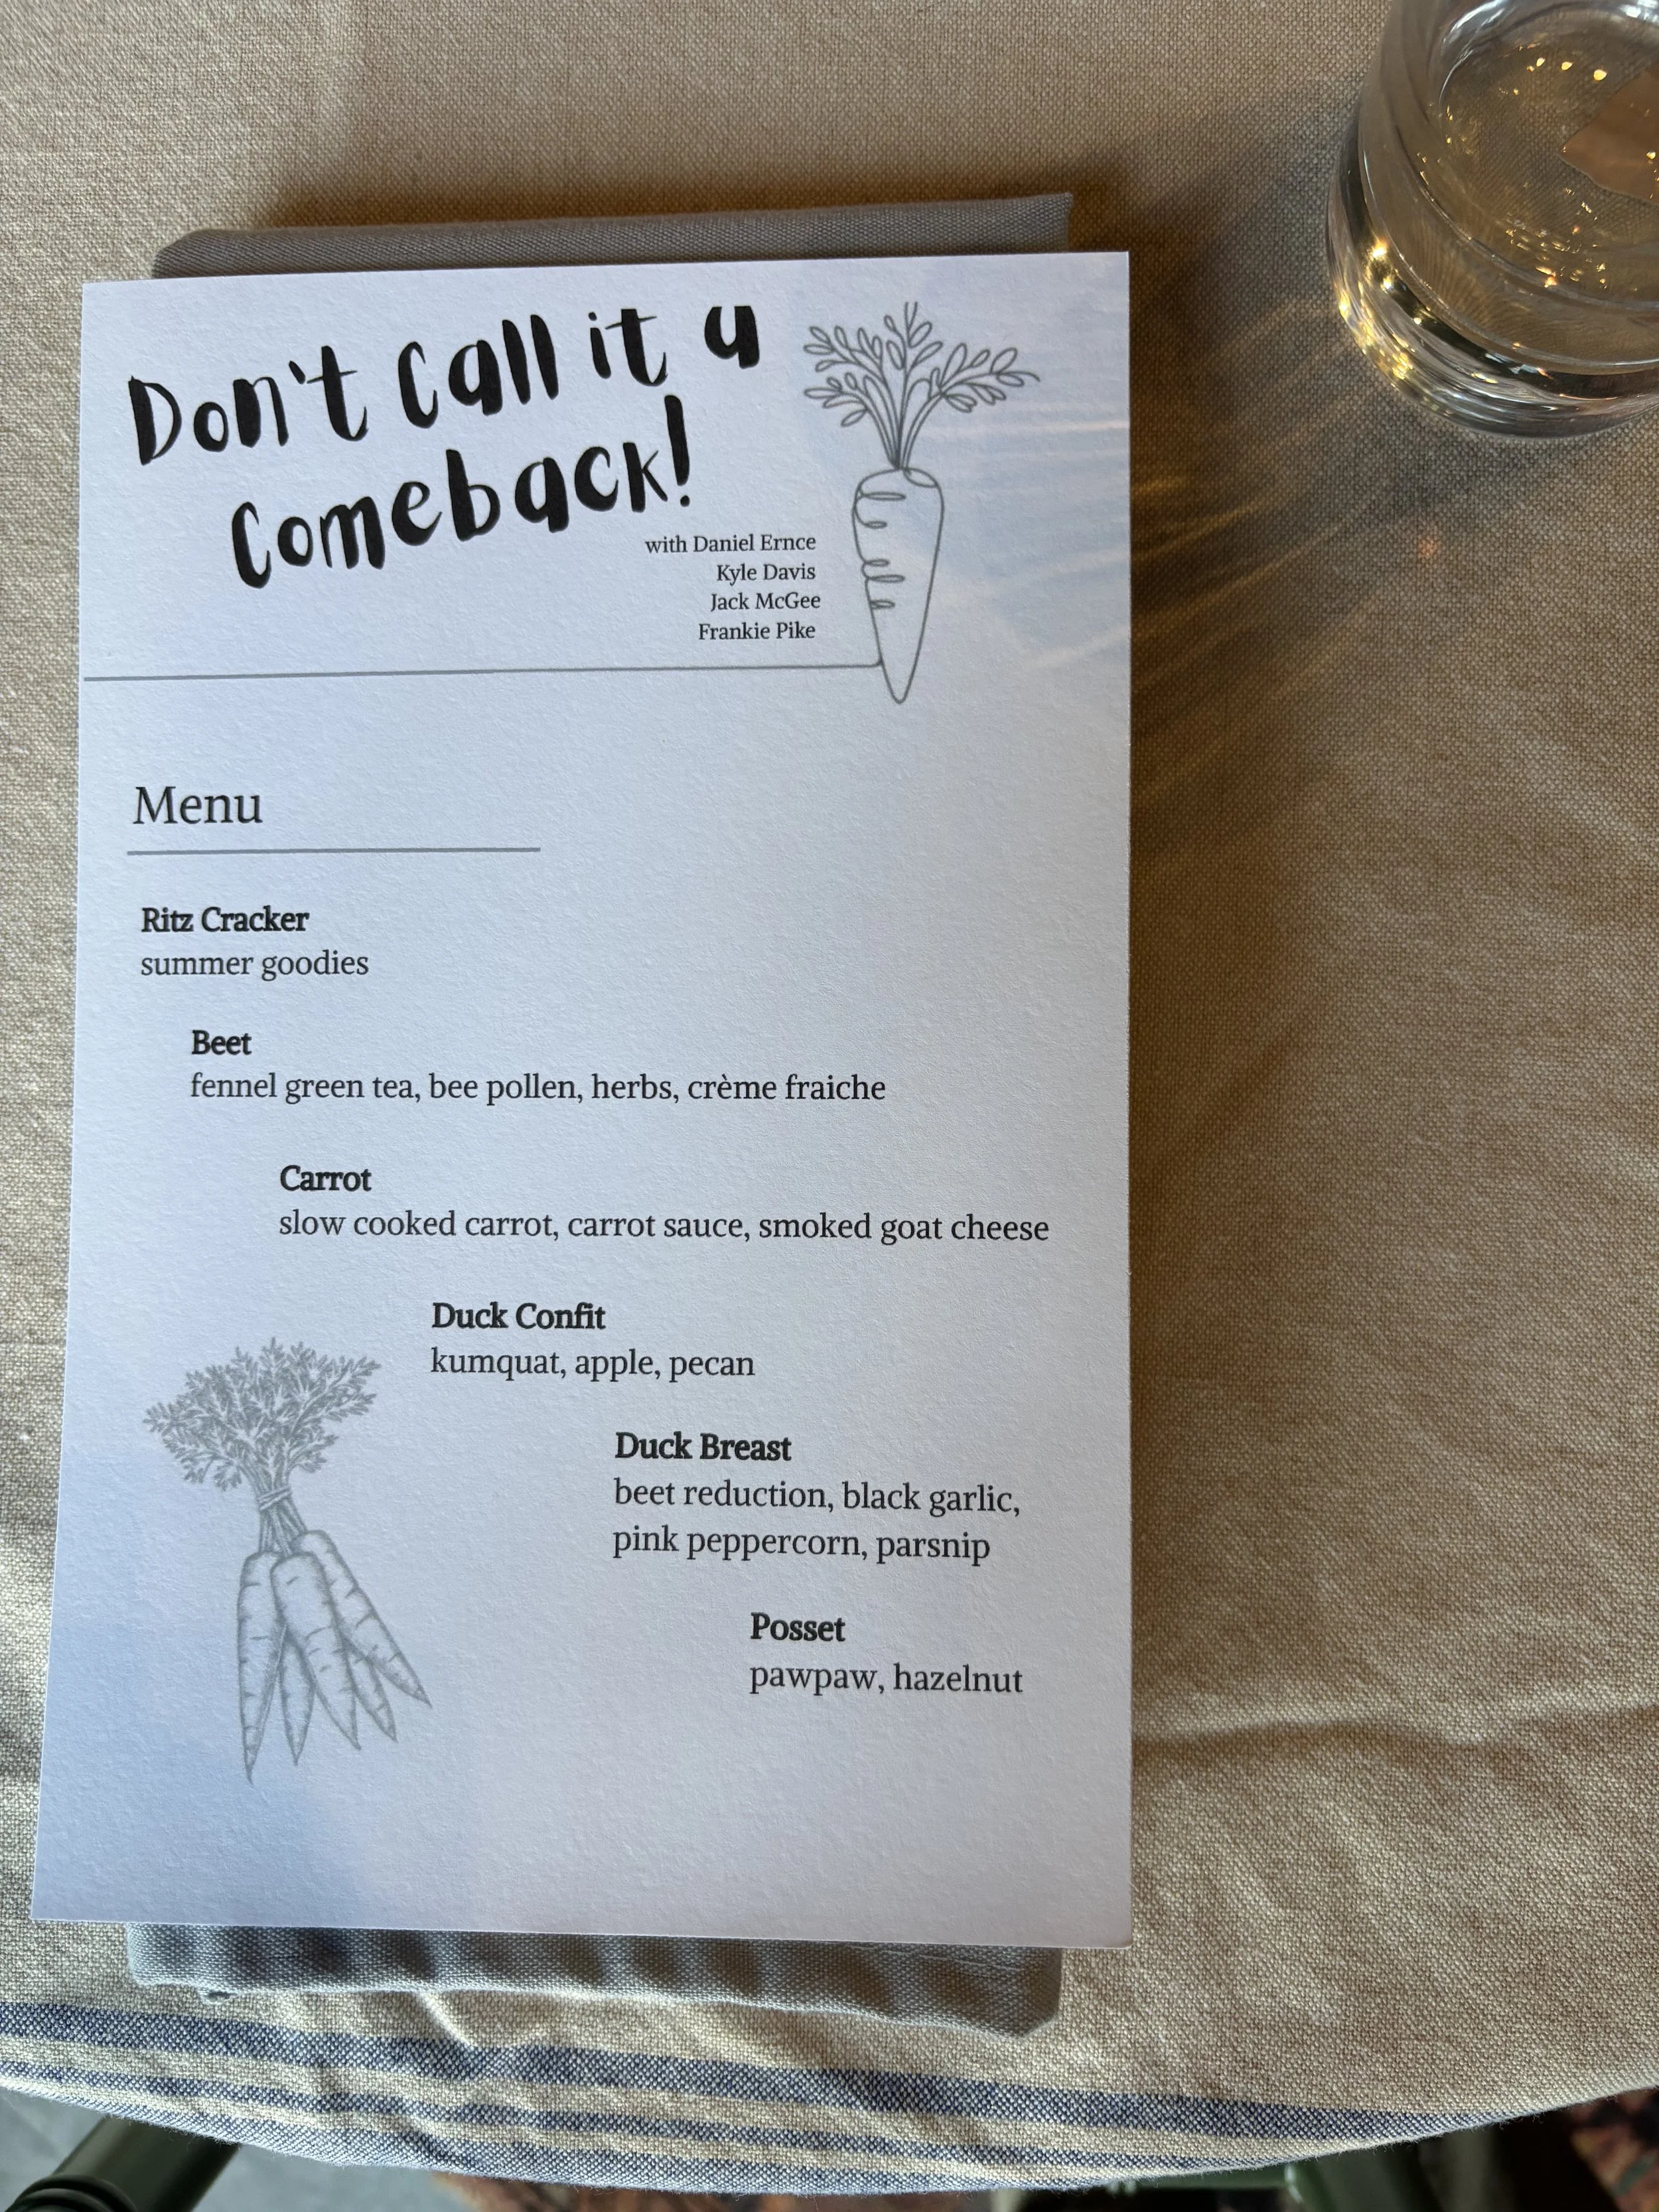 Don't Call it a
Comeback!
with Daniel Ernce
Kyle Davis
Jack McGee
Frankie Pike
Menu
Ritz Cracker
summer goodies
Beet
fennel green tea, bee pollen, herbs, crème fraiche
Carrot
slow cooked carrot, carrot sauce, smoked goat cheese
Duck Confit
kumquat, apple, pecan
Duck Breast
beet reduction, black garlic,
pink peppercorn, parsnip
Posset
pawpaw, hazelnut